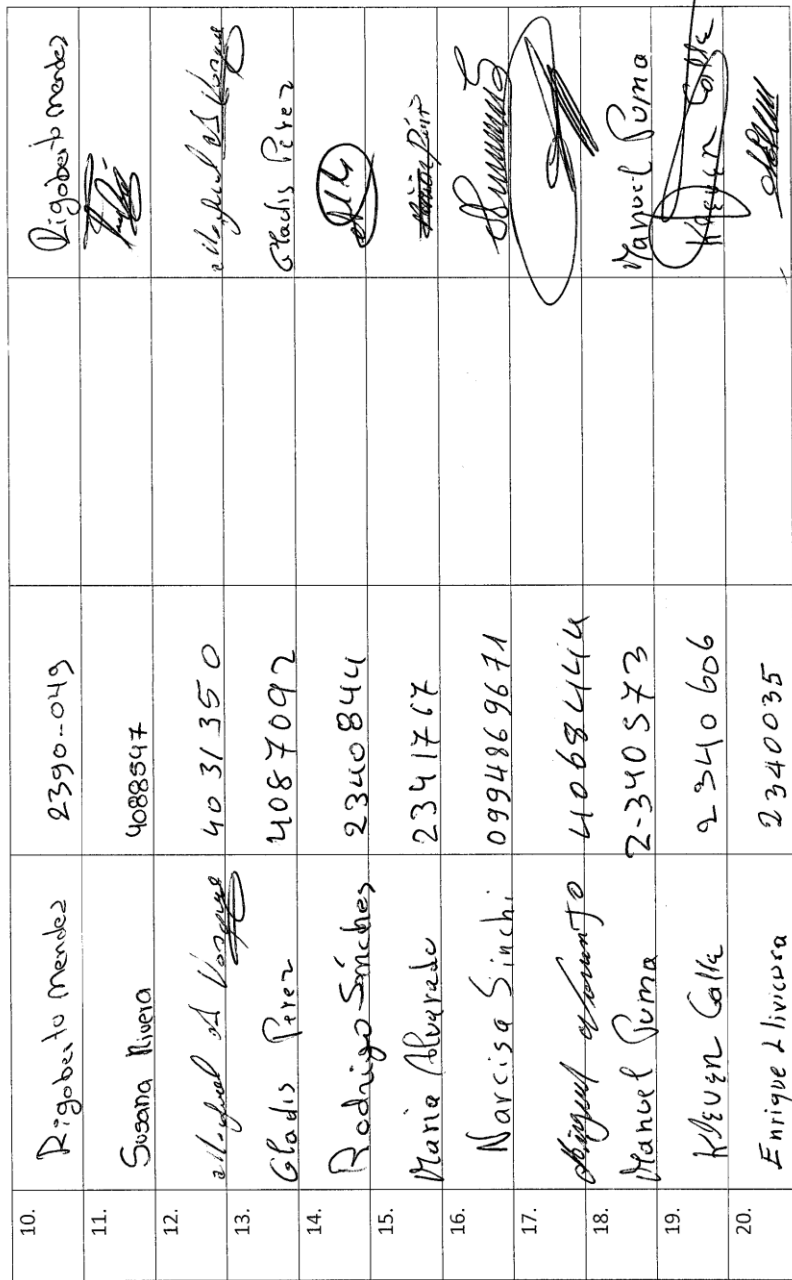 10. Rigoberto mendez 2390-049 Rigoberto mendez
11. Susana Rivera 4088547
12. A Vasquez 4031350
13. Gladis Pérez 4087092 Gladis Pérez
14. Rodrigo Sánches 2340844
15. Maria Alvarado 2341767
16. Narcisa Sinchi 0994869671
17. Miguel 4068444
18. Manuel Puma 2-340573 Manuel Puma
19. Klever Calle 2340606 Klever Calle
20. Enrique Llivicura 2340035